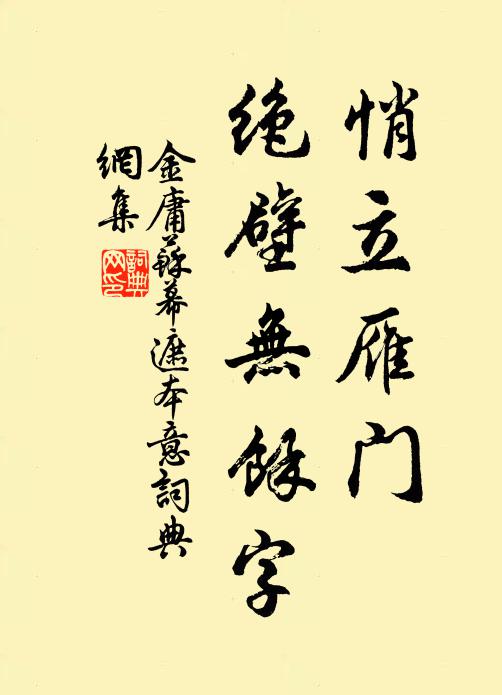 悄立雁门
绝壁無餘字
金庸蘇幕遮本意詞典
網集
詞典
网印